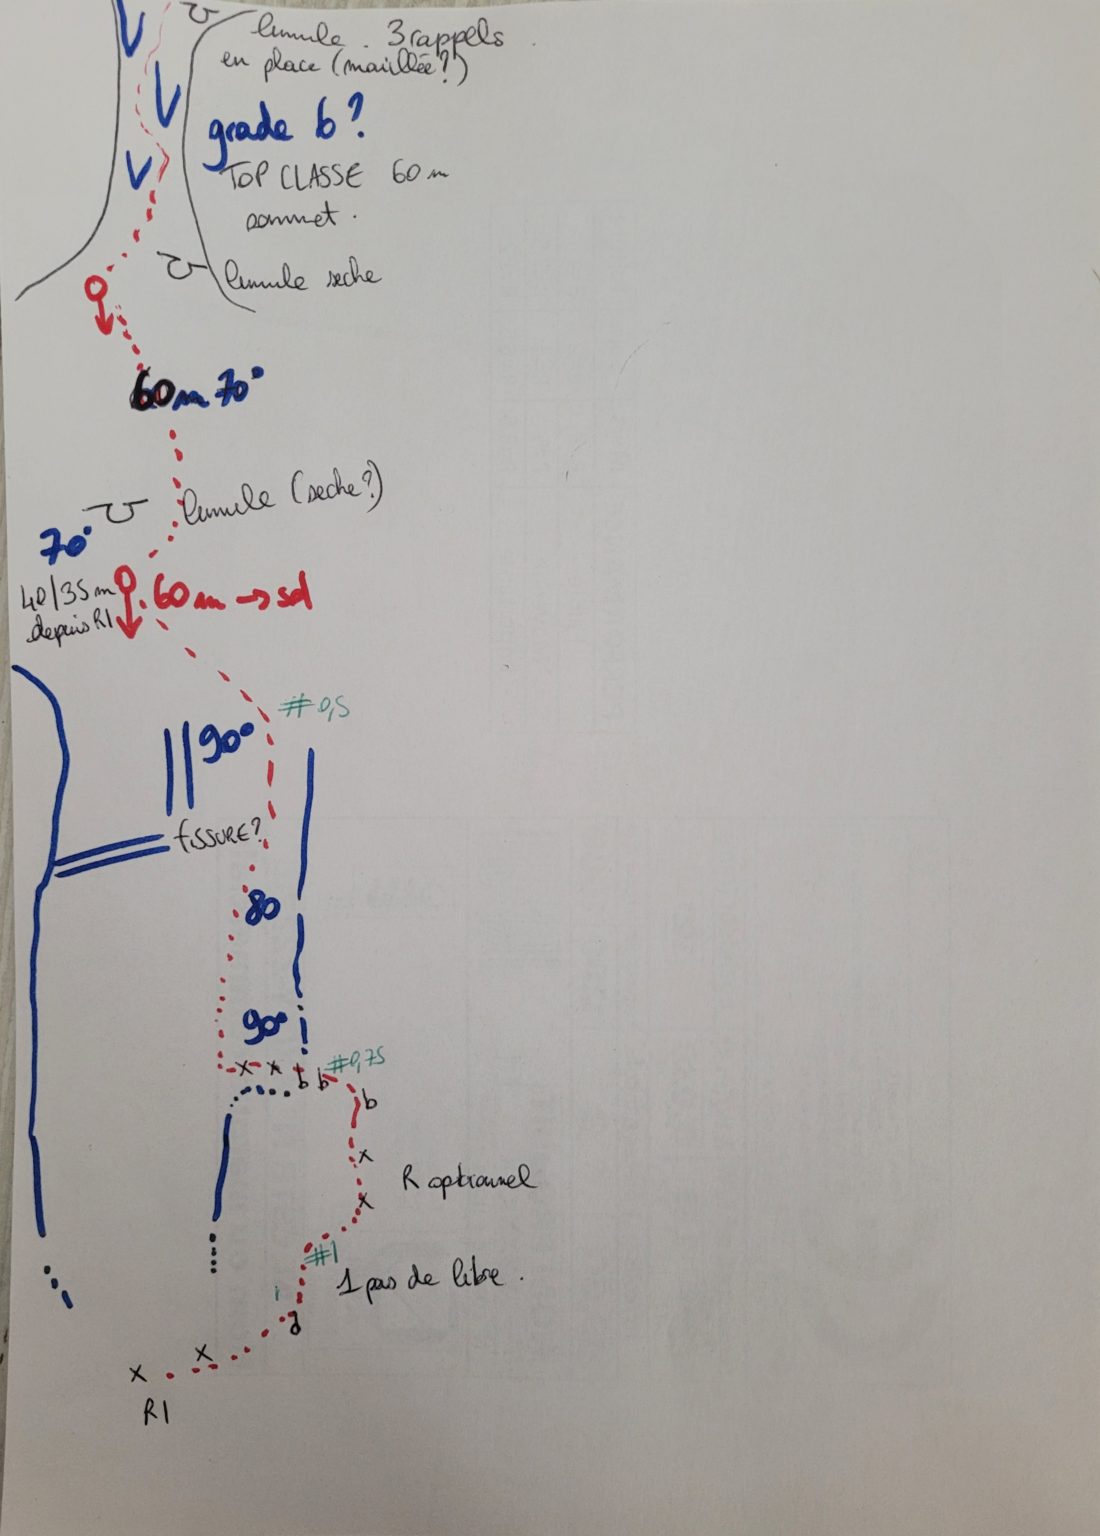 lunule . 3 rappels
en place (maillée?)
grade 6 ?
TOP CLASSE 60 m
sommet .
lunule seche
60m 70°
lunule (seche?)
70°
40/35m
depuis R1
60m → sol
#0,5
90°
fissure?
80
90°
#0,75
b b
b
R optionnel
#1
1 pas de libre .
R1